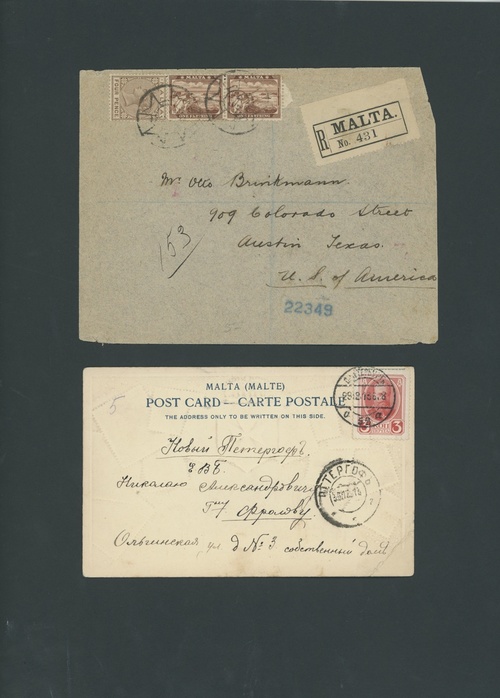 FOUR PENCE
MALTA
MALTA
R MALTA.
No. 431
Mr Otto Brinkmann.
909 Colorado Street
Austin Texas.
U. S. of America
153
22349
MALTA (MALTE)
POST CARD — CARTE POSTALE
THE ADDRESS ONLY TO BE WRITTEN ON THIS SIDE.
5
3 3
Новый Петергофъ
Николаю Александровичу
Фролову
Ольгинская ул д № 3 собственный домъ
ПЕТЕРГОФЪ